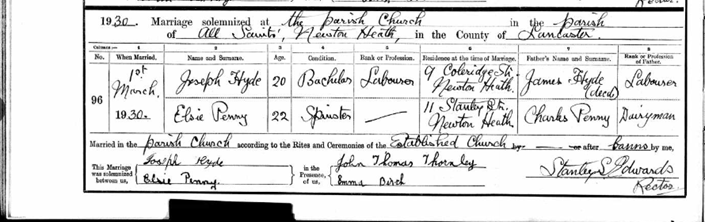 1930. Marriage solemnized at the Parish Church in the Parish
of All Saints', Newton Heath, in the County of Lancaster.
Columns:— 1 2 3 4 5 6 7 8
No. When Married. Name and Surname. Age. Condition. Rank or Profession. Residence at the time of Marriage. Father's Name and Surname. Rank or Profession of Father.
96 1st March, 1930. Joseph Hyde 20 Bachelor Labourer 9 Coleridge St. Newton Heath. James Hyde (decd) Labourer
Elsie Penny 22 Spinster — 11 Stanley St. Newton Heath. Charles Penny Dairyman
Married in the Parish Church according to the Rites and Ceremonies of the Established Church by — or after banns by me,
This Marriage was solemnized between us, Joseph Hyde in the Presence of us, John Thomas Thornley Stanley S. Edwards
Elsie Penny Emma Birch Rector